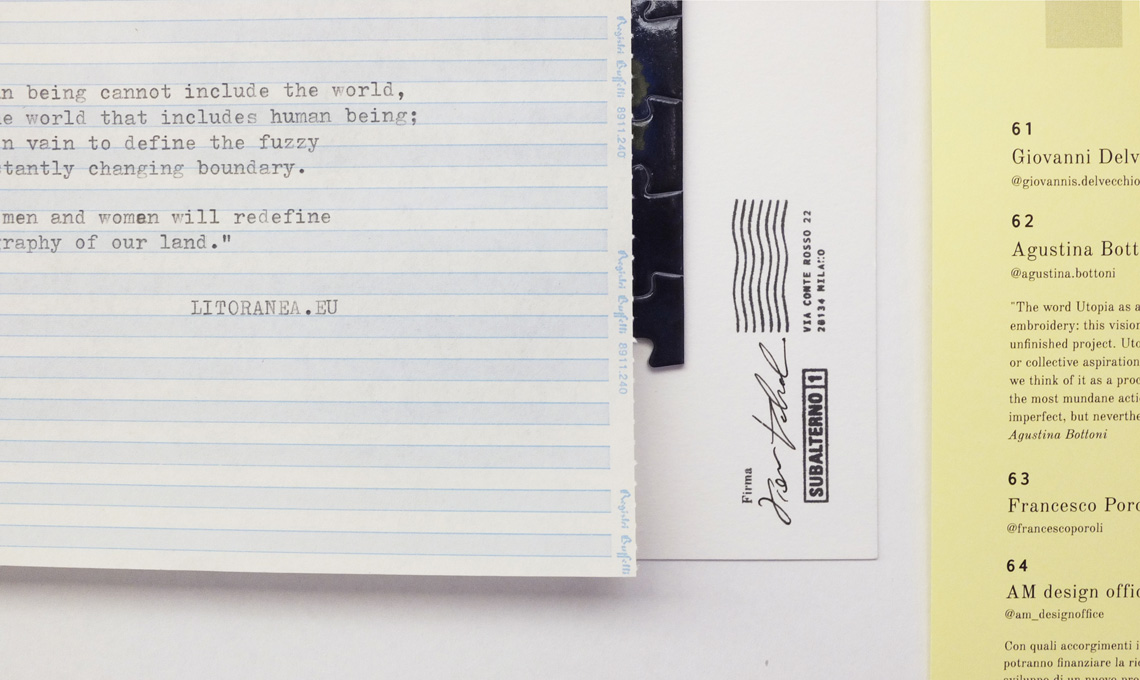 being cannot include the world,
world that includes human being;
vain to define the fuzzy
changing boundary.
men and women will redefine
of our land."
LITORANEA.EU
Registri Buffetti 8911.240
Registri Buffetti 8911.240
Registri Buffetti
Firma
SUBALTERNO 1
VIA CONTE ROSSO 22
20134 MILANO
61
Giovanni
@giovannis.delvecchio
62
Agustina
@agustina.bottoni
"The word Utopia as a
embroidery: this vision
unfinished project.
or collective aspiration
we think of it as a
the most mundane
imperfect, but
Agustina Bottoni
63
Francesco
@francescoporoli
64
AM design
@am_designoffice
Con quali accorgimenti i
potranno finanziare la
sviluppo di un nuovo